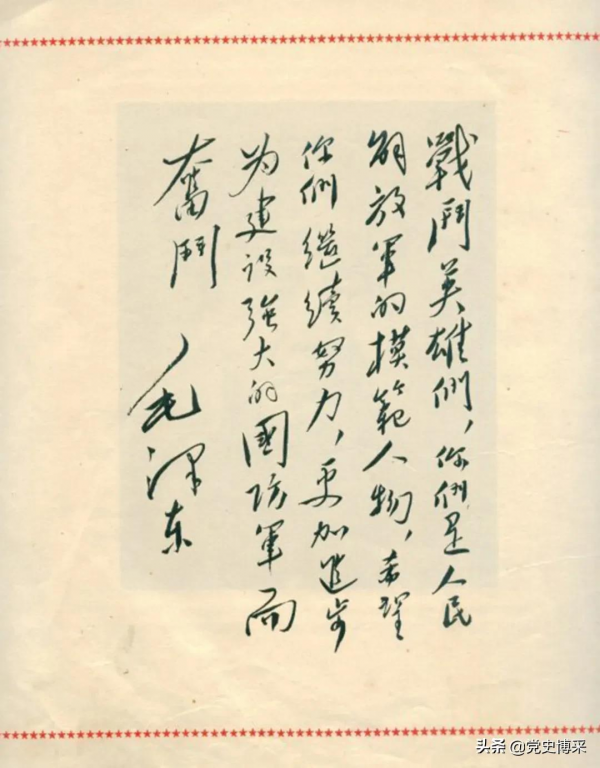 戰鬥英雄們，你們是人民
解放軍的模範人物，希望
你们繼續努力，更加進步
为建设強大的國防軍而
奮鬥
毛澤东
头条 @党史博采